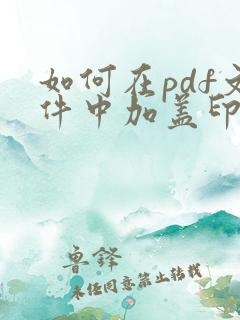 如何在pdf文
件中加盖印
鲁铎
未经同意禁止转载